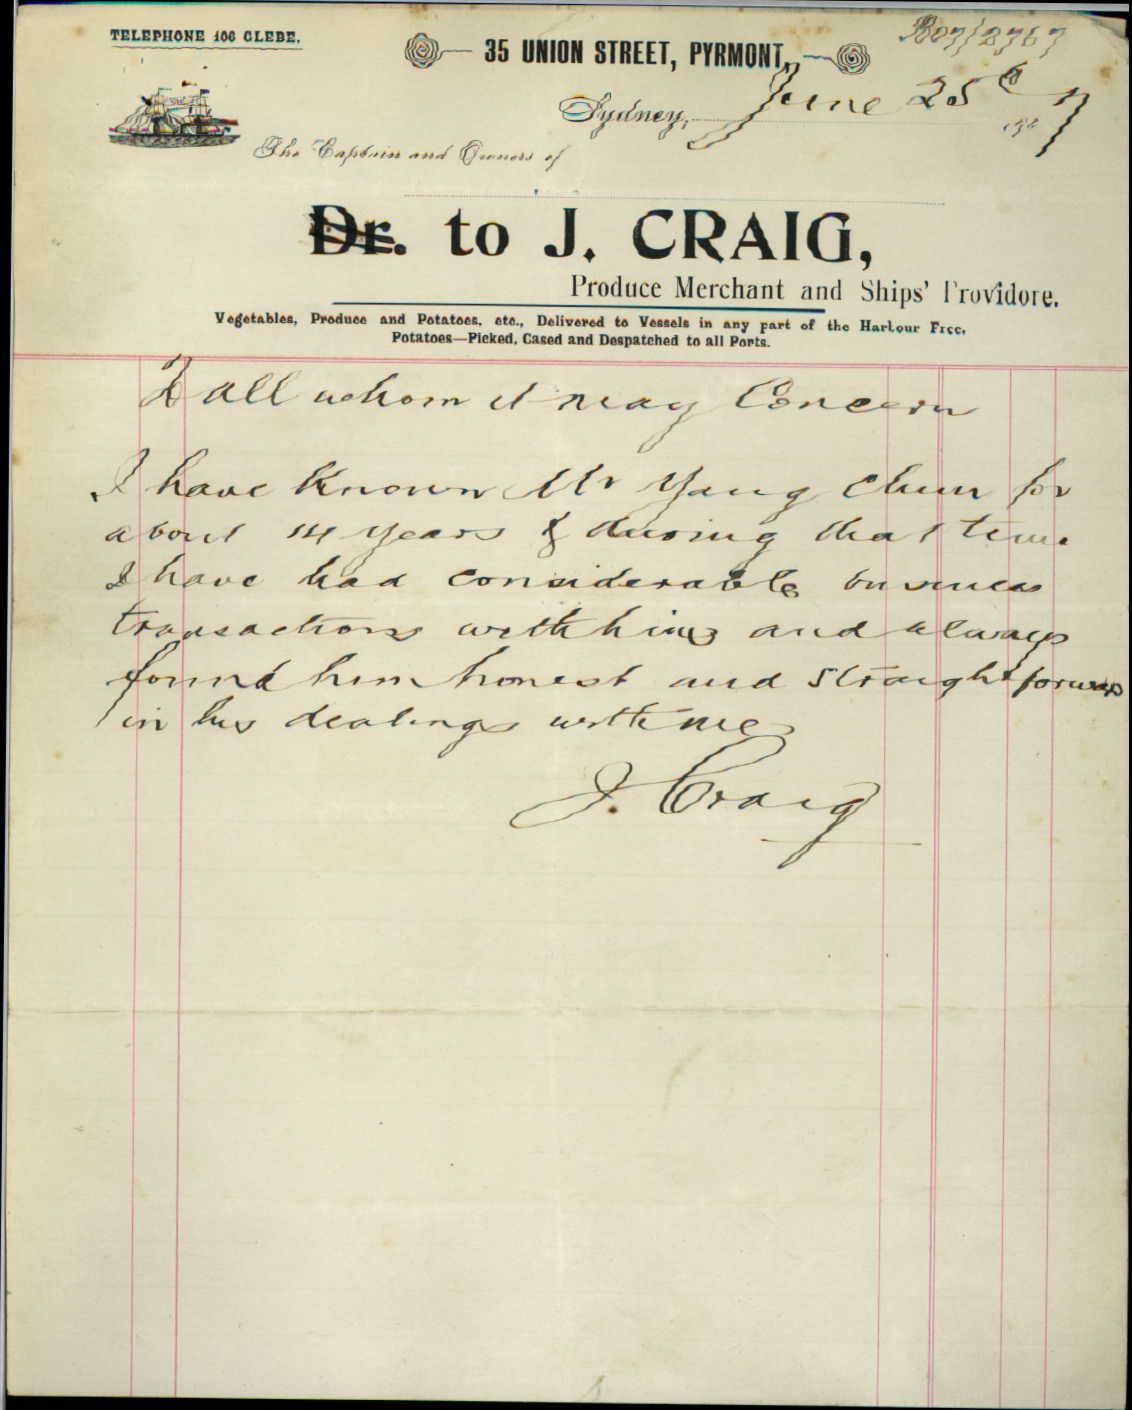 TELEPHONE 106 GLEBE.
B07/8767
35 UNION STREET, PYRMONT,
Sydney, June 25th 1907
The Captain and Owners of
Dr. to J. CRAIG,
Produce Merchant and Ships' Providore.
Vegetables, Produce and Potatoes, etc., Delivered to Vessels in any part of the Harbour Free.
Potatoes—Picked, Cased and Despatched to all Ports.
To all whom it may Concern
I have Known Mr Yang Chun for
about 14 years & during that time
I have had considerable business
transactions with him and always
found him honest and straightforward
in his dealings with me
J. Craig